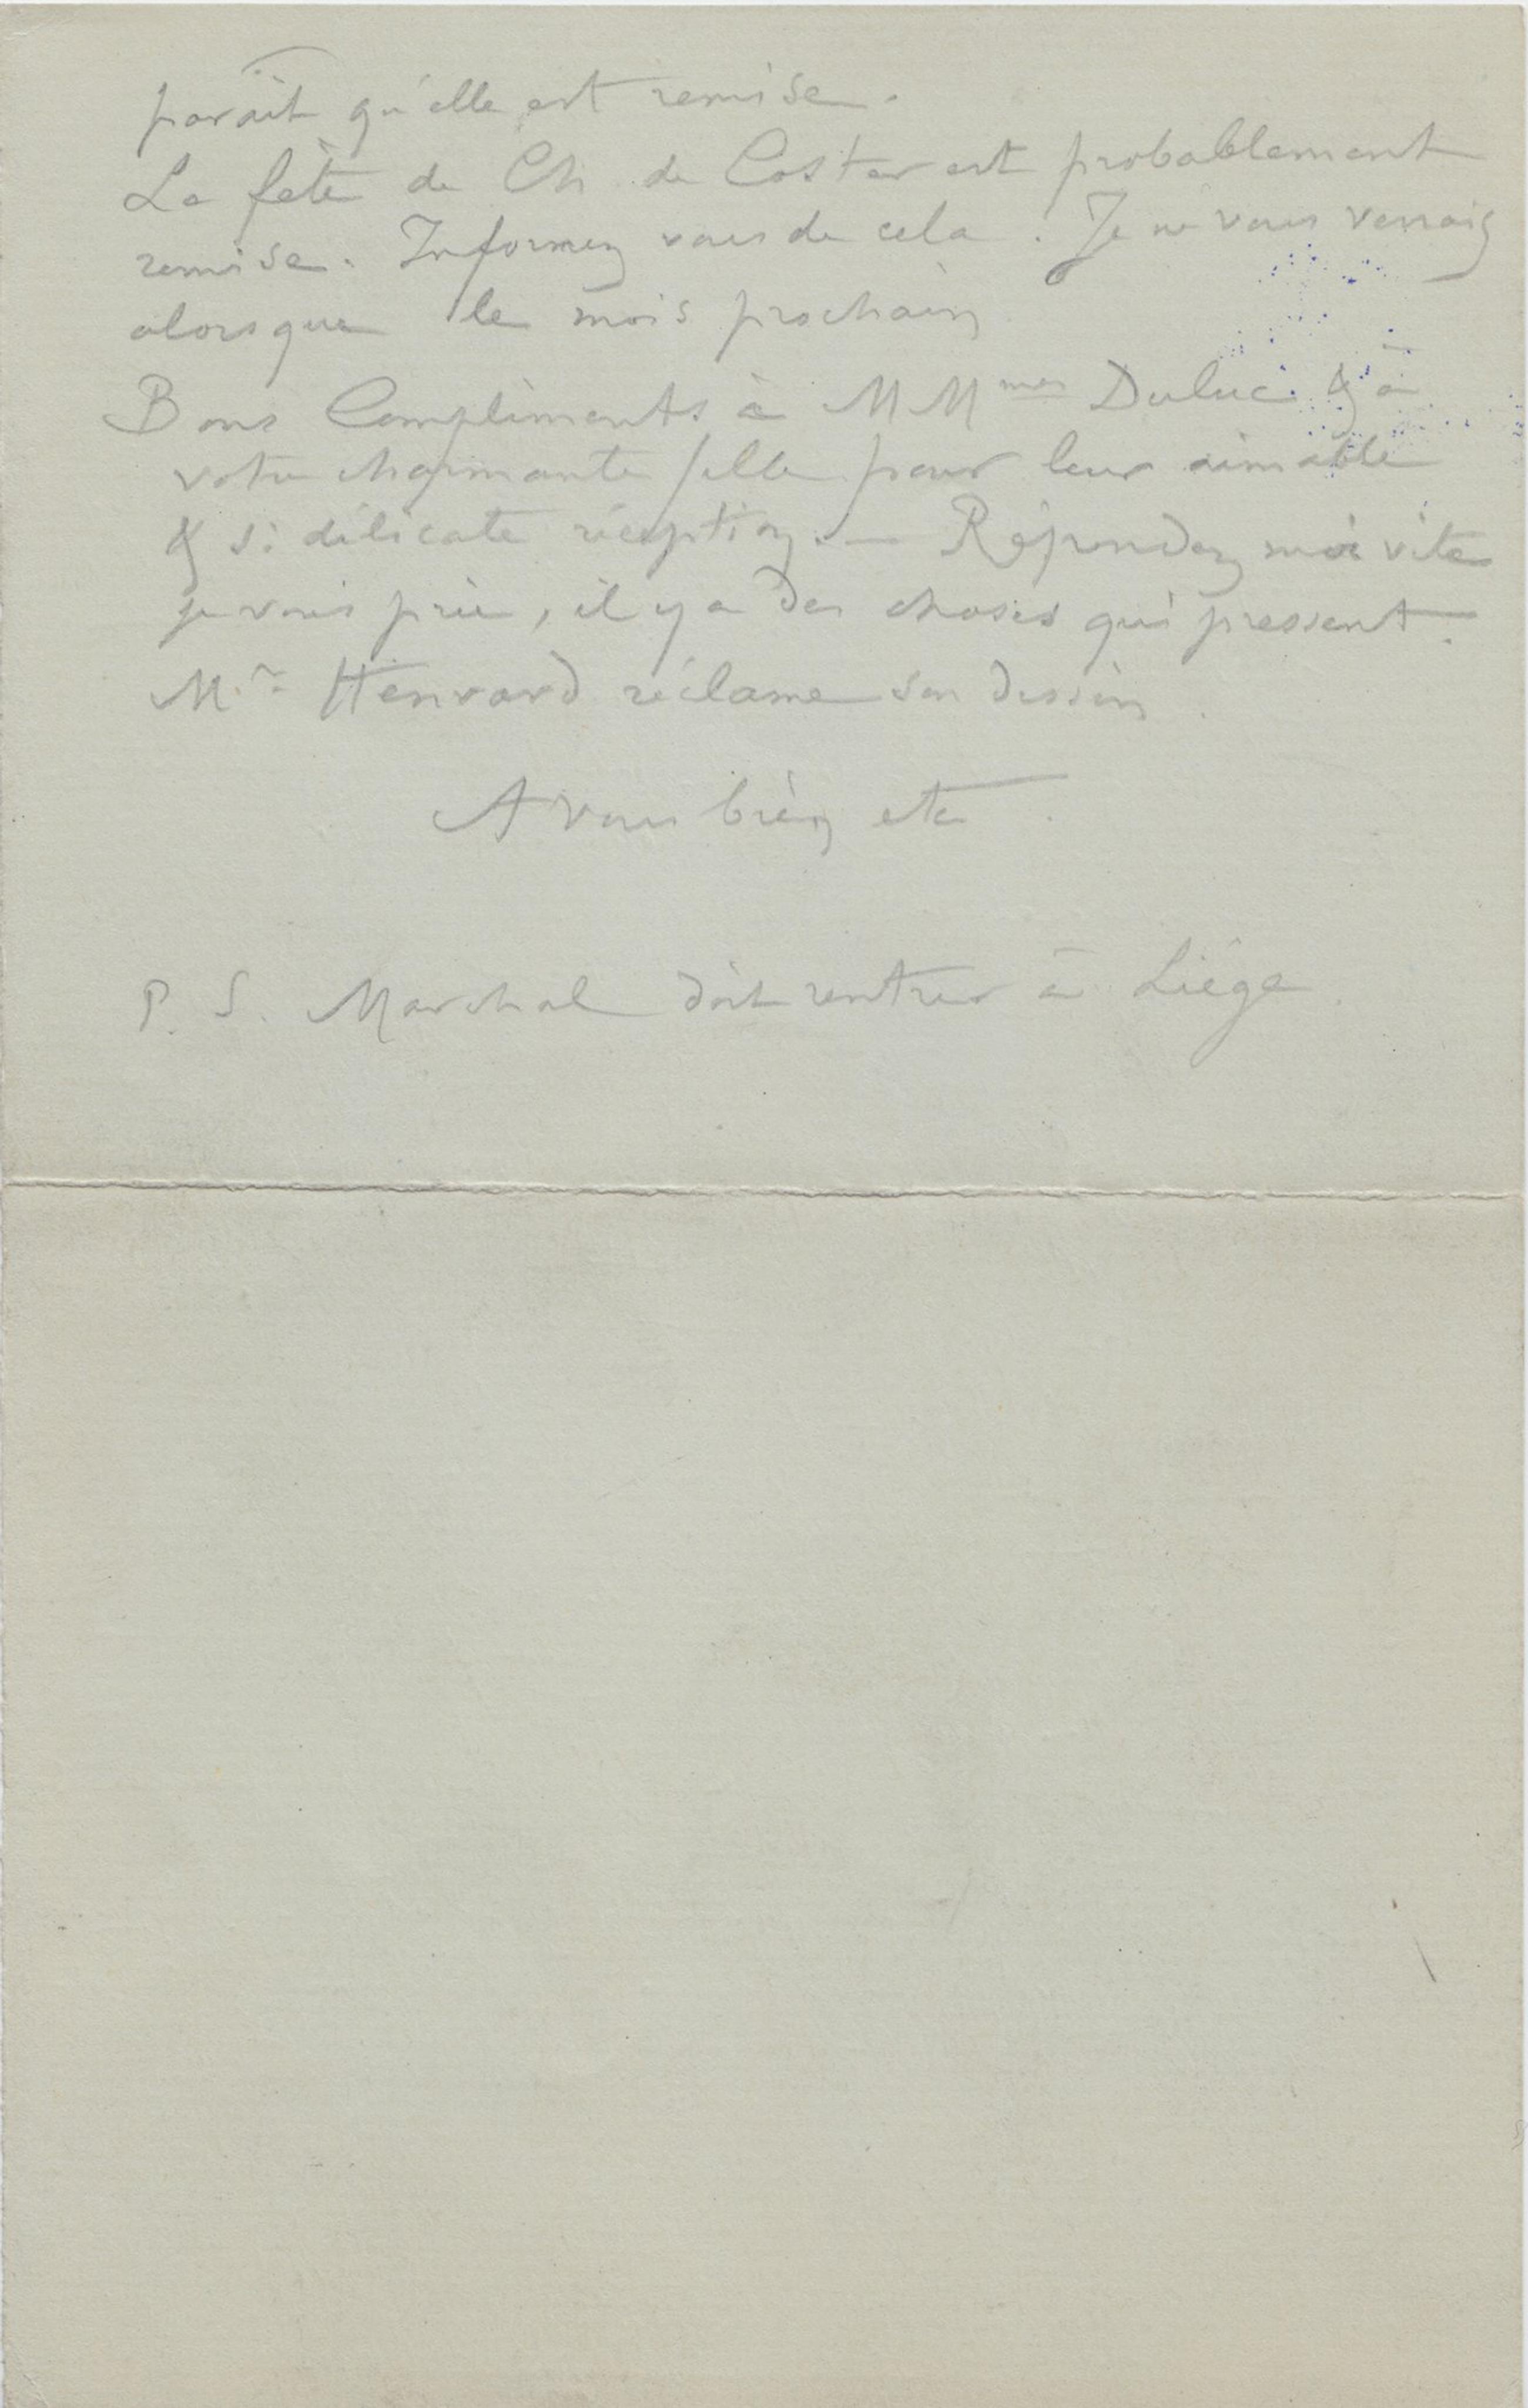 paraît qu'elle est remise.
La fête de Ch. de Coster est probablement
remise. Informez vous de cela. Je ne vous verrais
alors que le mois prochain
Bons Compliments à MMmes Duluc & à
votre charmante fille pour leur aimable
& si délicate réception. — Répondez moi vite
je vous prie, il y a des choses qui pressent.
Mr Henrard réclame son dessin.
A vous bien etc.
P. S. Marchal doit rentrer à Liége.